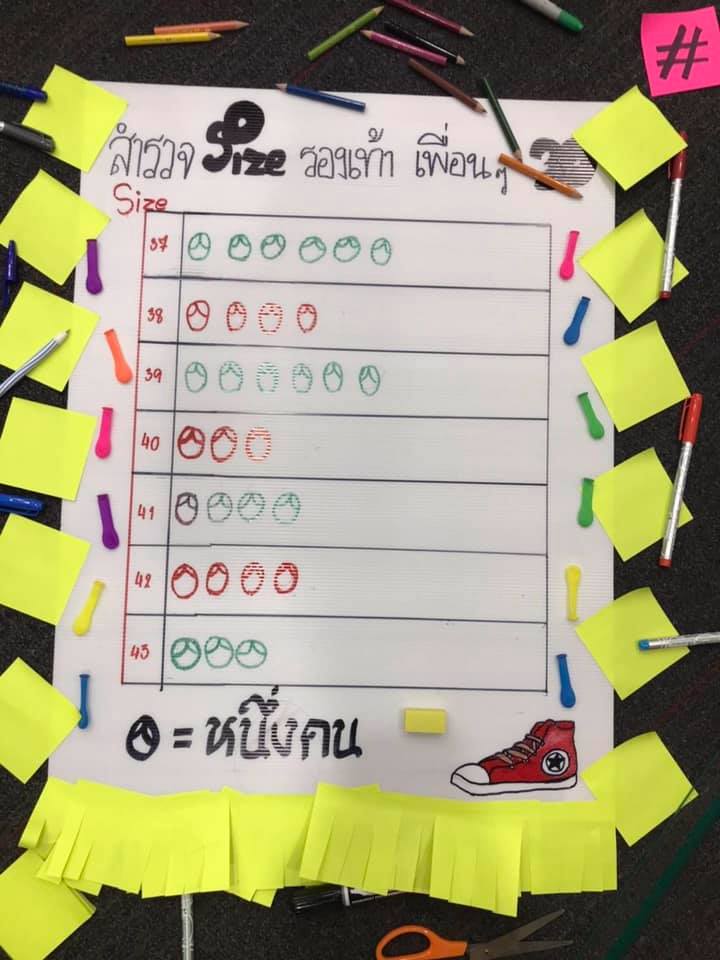 #
สำรวจ Size รองเท้า เพื่อนๆ
Size
37
38
39
40
41
42
43
= หนึ่งคน